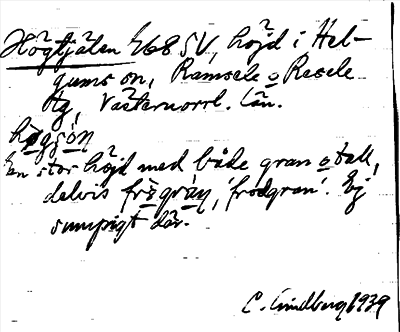 Högtjälen E68 SV, höjd i Hel-
gums sn, Ramsele o Resele
tg, Västernorrl. län.
högsǫn
En stor höjd med både gran o tall,
delvis frs̱grạn, 'frodgran'. Ej
sumpigt där.
C. Lindberg 1939